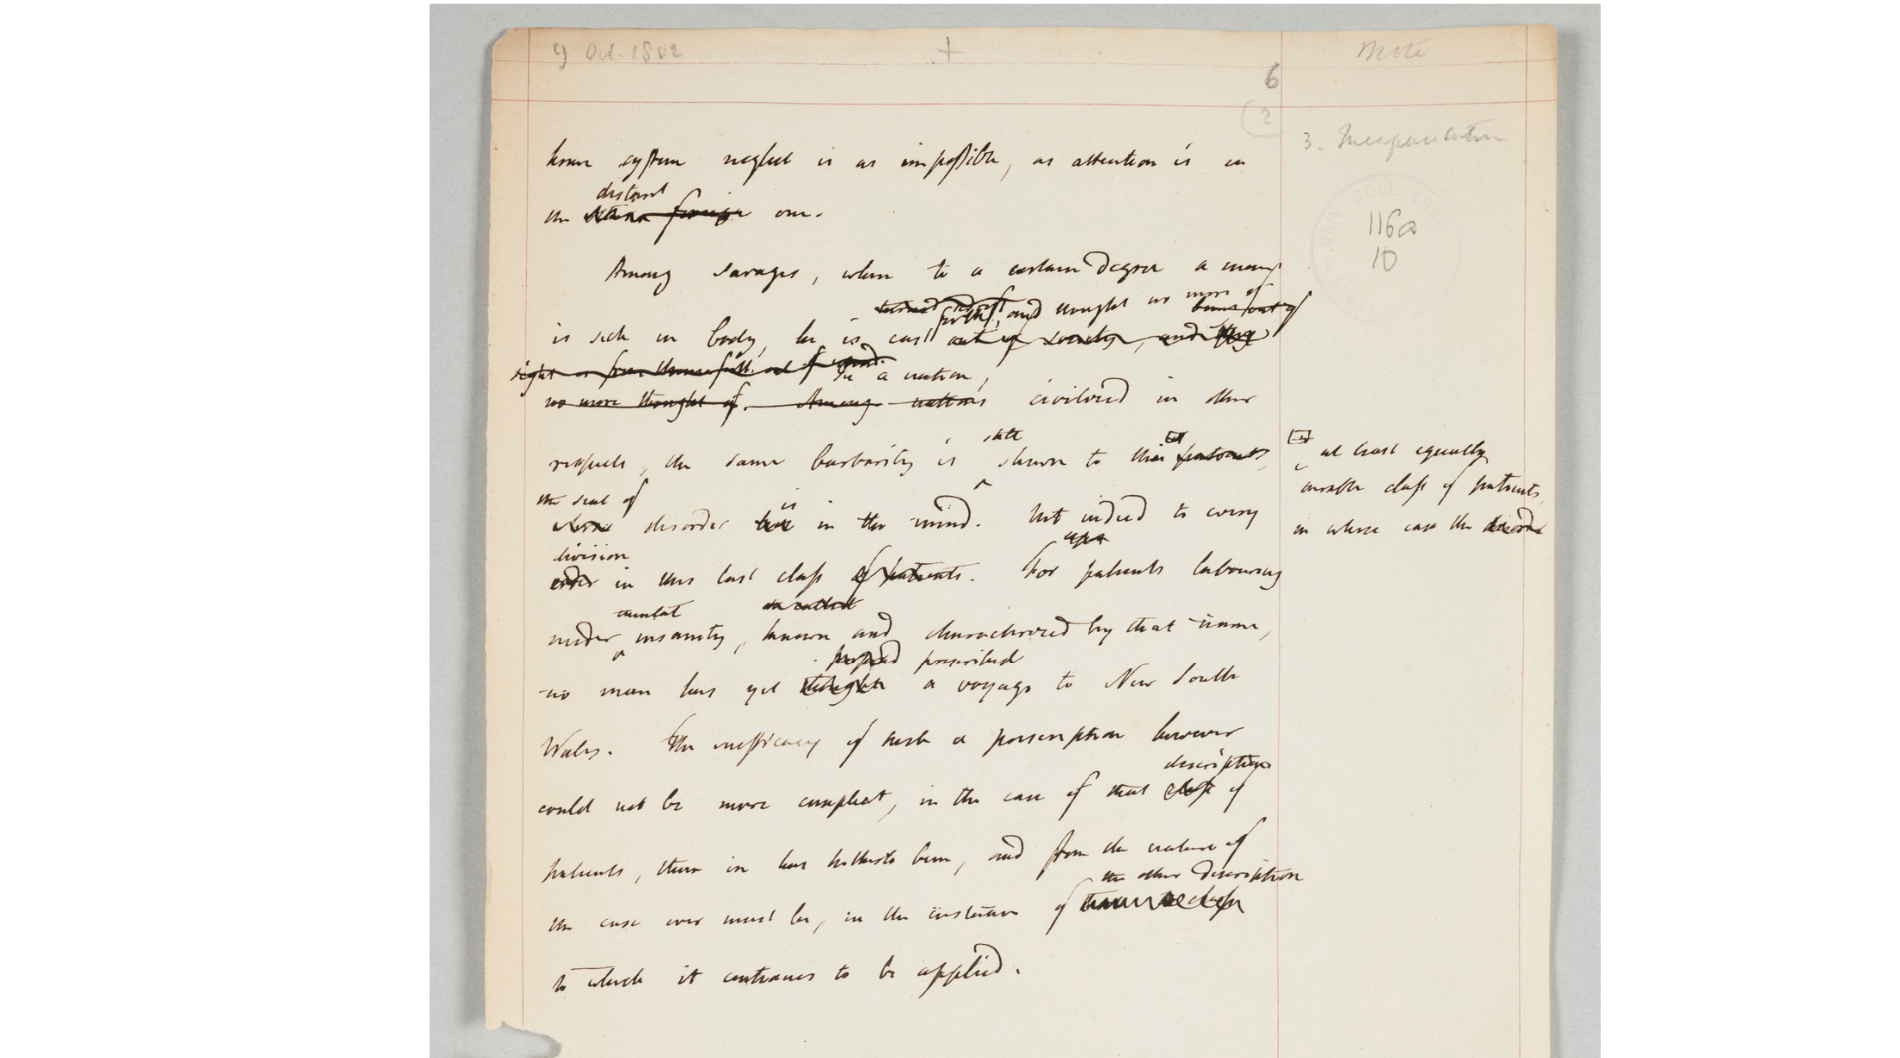 9 Oct. 1802 + Note
6
2
3. Incapacitation
116a
10
home system neglect is as impossible, as attention is in
distant
the foreign one.
Among savages, when to a certain degree a man
turned and thought no more of
forth,
is sick in body, he is cast out of society, and
In a nation,
no more thought of. Among nations civilized in other
still
respects, the same barbarity is shewn to this patients,
at least equally
curable class of patients,
in whose case the disorder
the seat of is
whose disorder in the mind. Not indeed to every
division
order in this last class of patients. For patients labouring
mental so called
under insanity, known and characterized by that name,
proposed prescribed
no man has yet thought a voyage to New South
Wales. The inefficacy of such a prescription however
description
could not be more compleat, in the case of that class of
patients, than it has hitherto been, and from the nature of
the other description
the case ever must be, in the instance of
to which it continues to be applied.